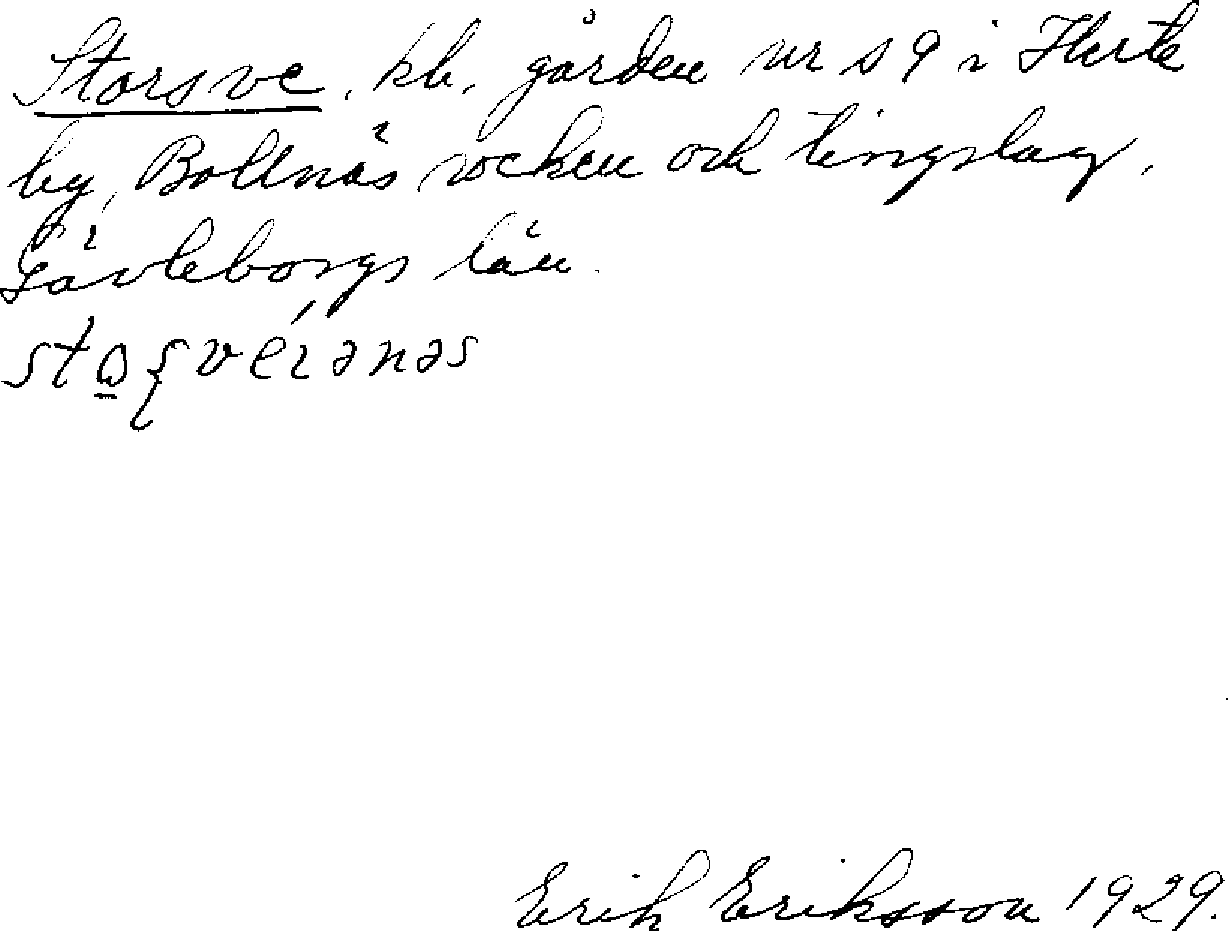 Storsve, kb. gården nr s 9 i Herte
by, Bollnäs socken och tingslag,
Gävleborgs län.
Erik Eriksson 1929.